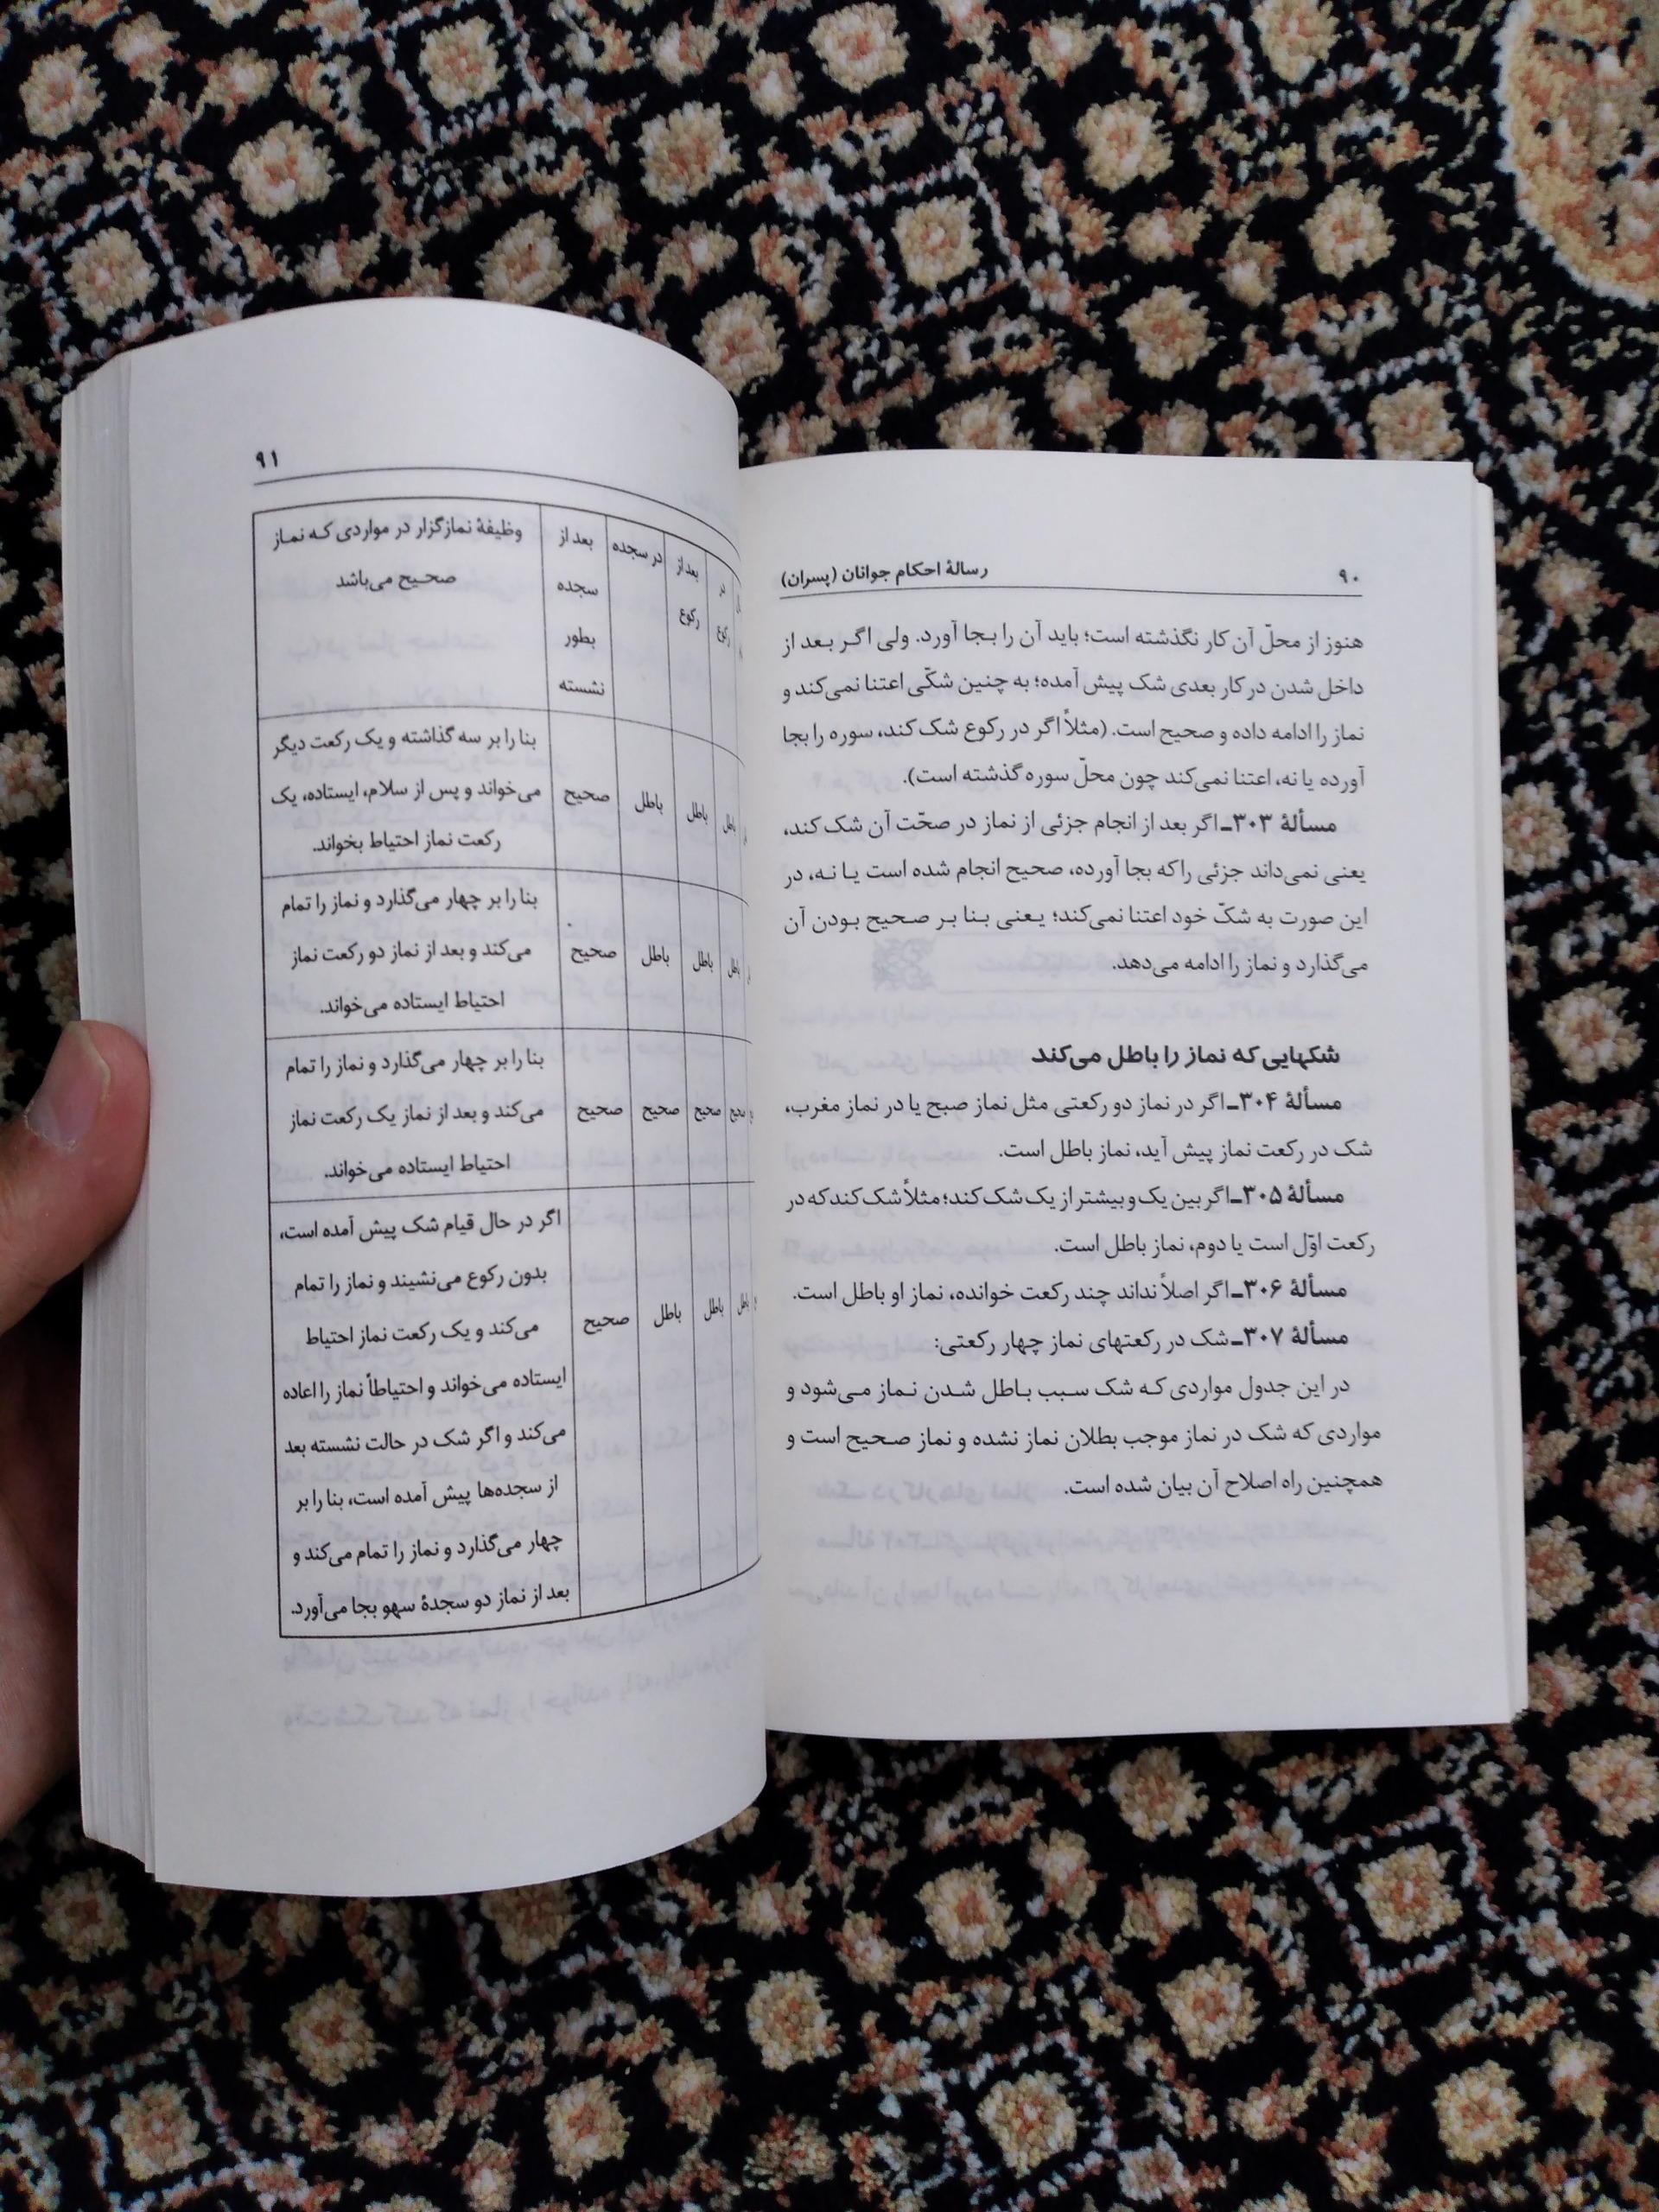 ۹۰
رسالهٔ احکام جوانان (پسران)
هنوز از محلّ آن کار نگذشته است؛ باید آن را بجا آورد. ولی اگر بعد از
داخل شدن در کار بعدی شک پیش آمده؛ به چنین شکّی اعتنا نمی‌کند و
نماز را ادامه داده و صحیح است. (مثلاً اگر در رکوع شک کند، سوره را بجا
آورده یا نه، اعتنا نمی‌کند چون محلّ سوره گذشته است).
مسألهٔ ۳۰۳ـ اگر بعد از انجام جزئی از نماز در صحّت آن شک کند،
یعنی نمی‌داند جزئی را که بجا آورده، صحیح انجام شده است یا نه، در
این صورت به شکّ خود اعتنا نمی‌کند؛ یعنی بنا بر صحیح بودن آن
می‌گذارد و نماز را ادامه می‌دهد.
شکهایی که نماز را باطل می‌کند
مسألهٔ ۳۰۴ـ اگر در نماز دو رکعتی مثل نماز صبح یا در نماز مغرب،
شک در رکعت نماز پیش آید، نماز باطل است.
مسألهٔ ۳۰۵ـ اگر بین یک و بیشتر از یک شک کند؛ مثلاً شک کند که در
رکعت اوّل است یا دوم، نماز باطل است.
مسألهٔ ۳۰۶ـ اگر اصلاً نداند چند رکعت خوانده، نماز او باطل است.
مسألهٔ ۳۰۷ـ شک در رکعتهای نماز چهار رکعتی:
در این جدول مواردی که شک سبب باطل شدن نماز می‌شود و
مواردی که شک در نماز موجب بطلان نماز نشده و نماز صحیح است و
همچنین راه اصلاح آن بیان شده است.
۹۱
در رکوع
بعد از رکوع
در سجده
بعد از
سجده
بطور
نشسته
وظیفهٔ نمازگزار در مواردی که نماز
صحیح می‌باشد
باطل باطل باطل صحیح
بنا را بر سه گذاشته و یک رکعت دیگر
می‌خواند و پس از سلام، ایستاده، یک
رکعت نماز احتیاط بخواند.
باطل باطل باطل صحیح
بنا را بر چهار می‌گذارد و نماز را تمام
می‌کند و بعد از نماز دو رکعت نماز
احتیاط ایستاده می‌خواند.
صحیح صحیح صحیح صحیح
بنا را بر چهار می‌گذارد و نماز را تمام
می‌کند و بعد از نماز یک رکعت نماز
احتیاط ایستاده می‌خواند.
باطل باطل باطل صحیح
اگر در حال قیام شک پیش آمده است،
بدون رکوع می‌نشیند و نماز را تمام
می‌کند و یک رکعت نماز احتیاط
ایستاده می‌خواند و احتیاطاً نماز را اعاده
می‌کند و اگر شک در حالت نشسته بعد
از سجده‌ها پیش آمده است، بنا را بر
چهار می‌گذارد و نماز را تمام می‌کند و
بعد از نماز دو سجدهٔ سهو بجا می‌آورد.